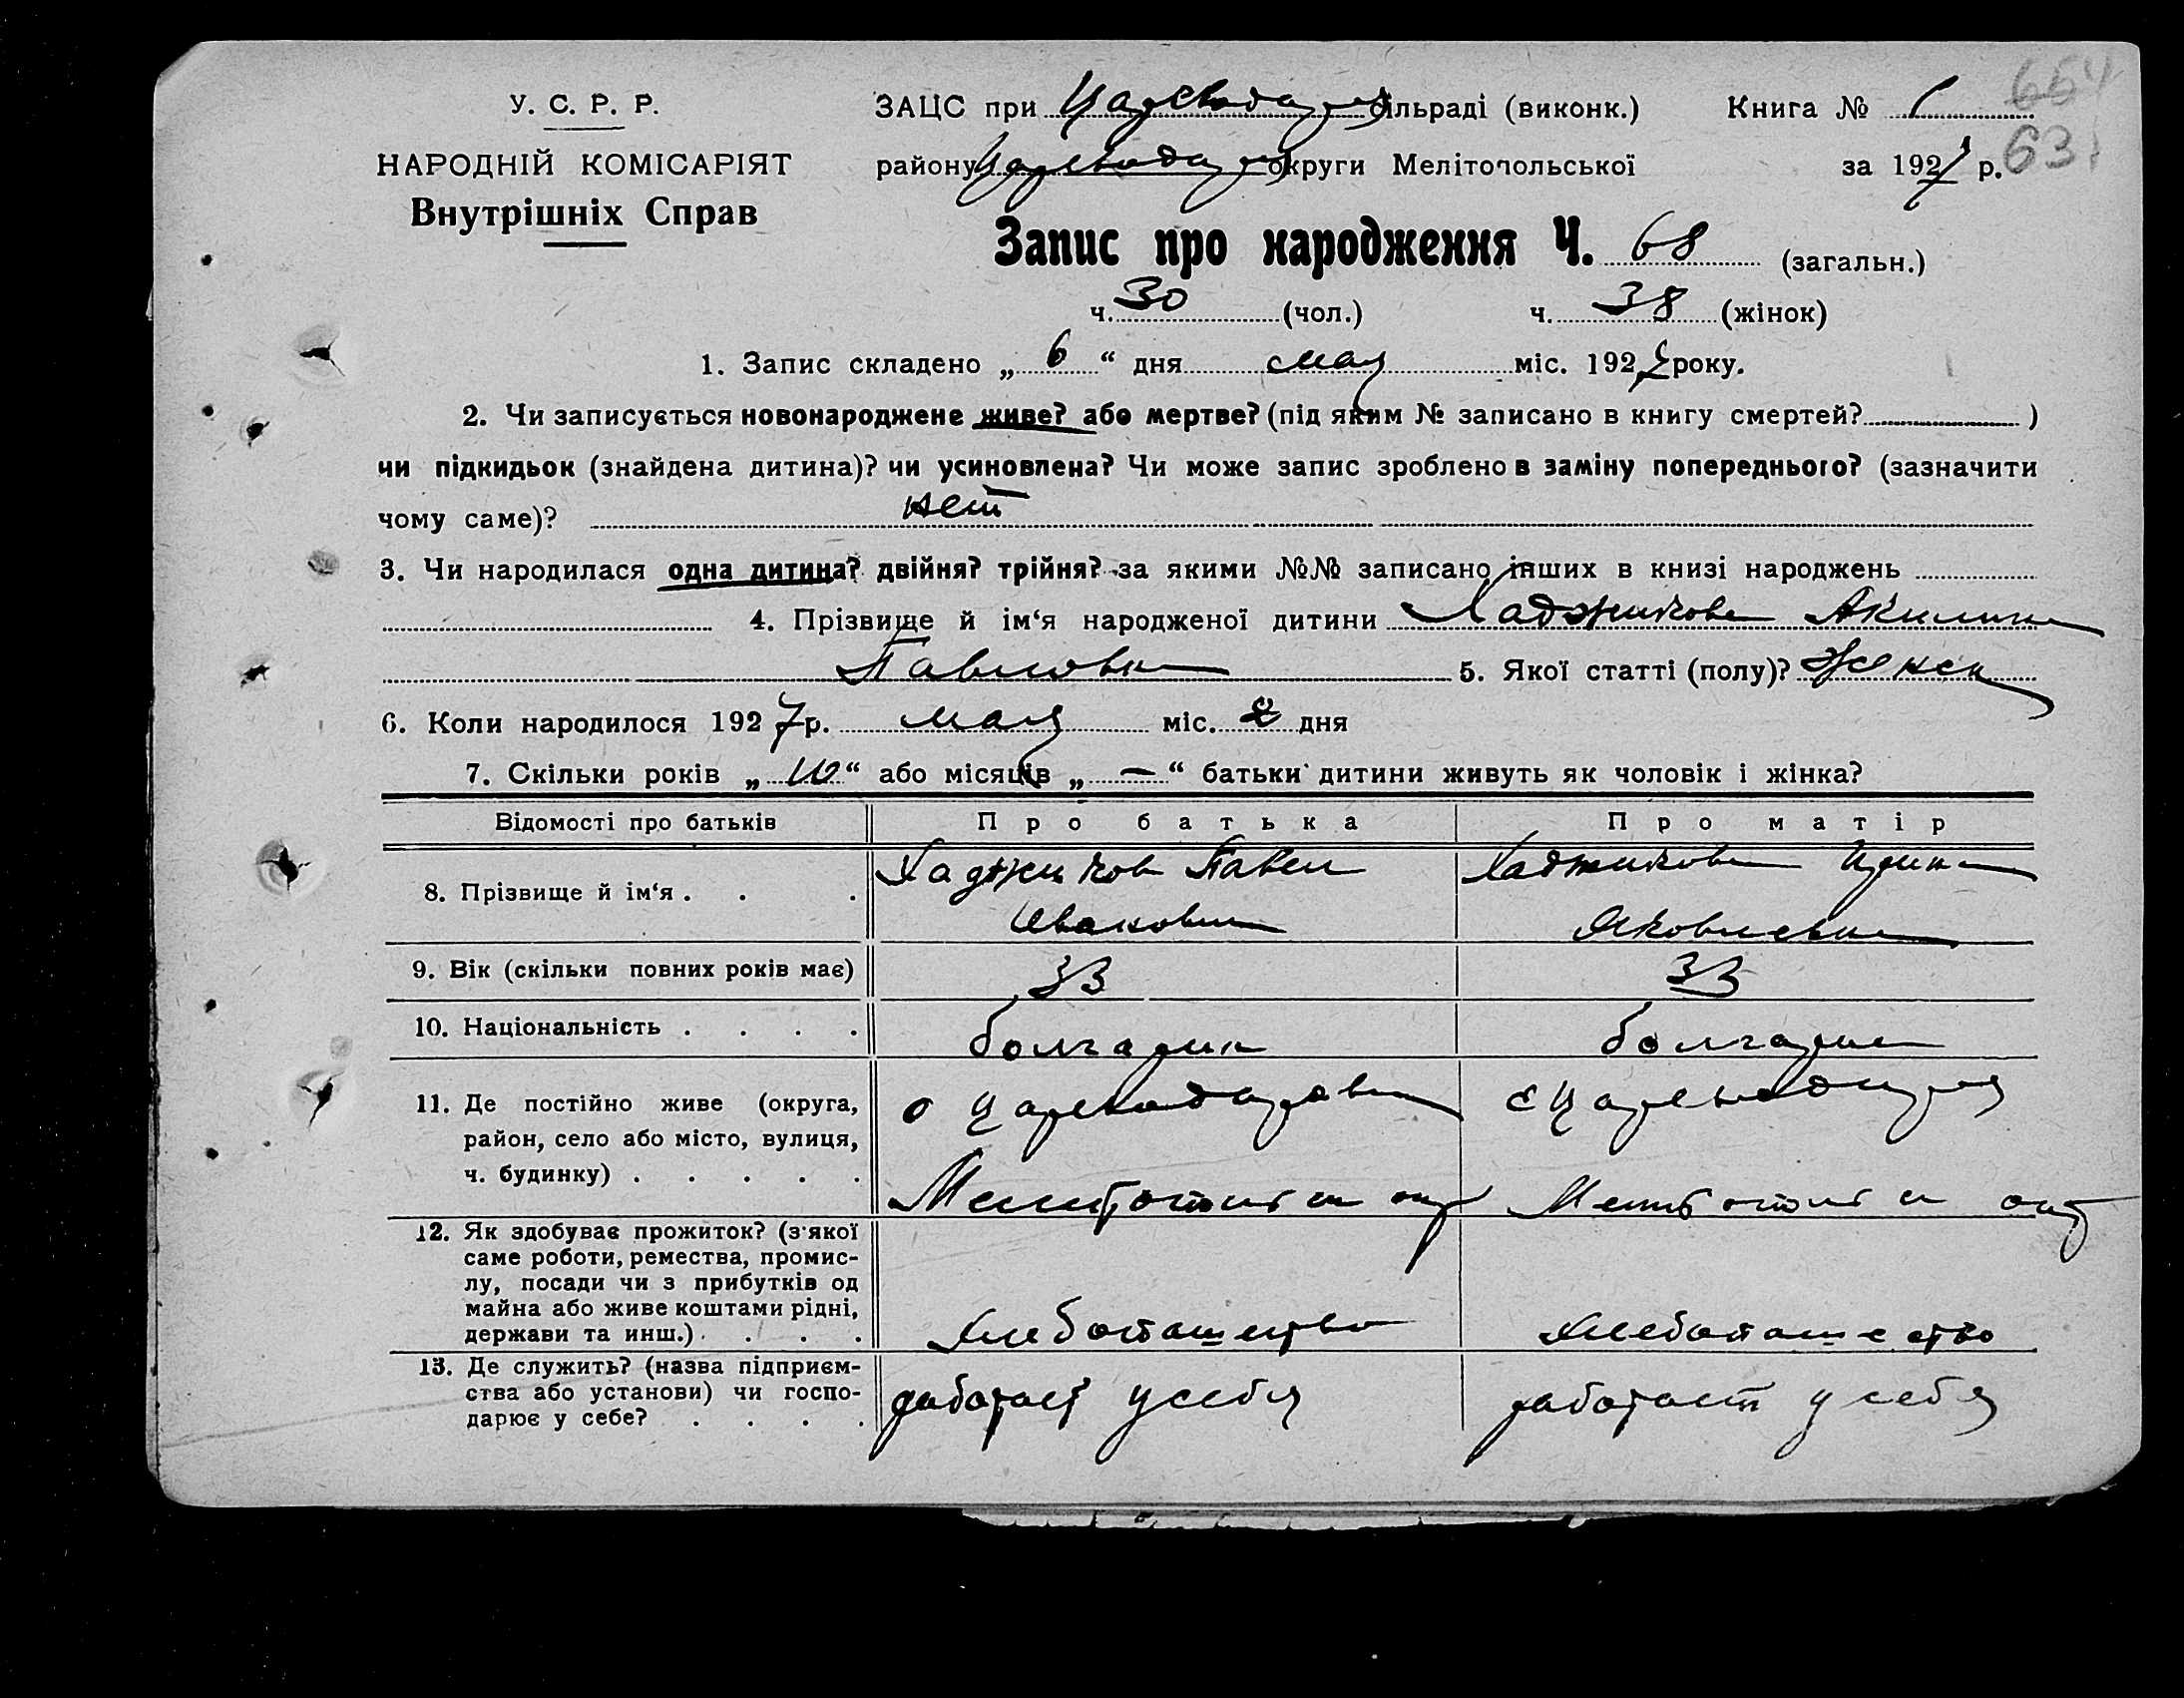 У. С. Р. Р.
НАРОДНІЙ КОМІСАРІЯТ
Внутрішніх Справ
ЗАЦС при Царевода сільраді (виконк.) Книга № 1
654
району Царевода округи Мелітопольської за 1927 р.
631
Запис про народження Ч. 68 (загальн.)
ч. 30 (чол.) ч. 38 (жінок)
1. Запис складено „ 6 “ дня мая міс. 1927 року.
2. Чи записується новонароджене живе? або мертве? (під яким № записано в книгу смертей? )
чи підкидьок (знайдена дитина)? чи усиновлена? Чи може запис зроблено в заміну попереднього? (зазначити
чому саме)? нет
3. Чи народилася одна дитина? двійня? трійня? за якими №№ записано інших в книзі народжень
4. Прізвище й ім‘я народженої дитини Хаджикова Акилина
Павловна 5. Якої статті (полу)? Женск
6. Коли народилося 1927 р. мая міс. 2 дня
7. Скільки років „ 10 “ або місяців „ — “ батьки дитини живуть як чоловік і жінка?
Відомості про батьків Про батька Про матір
8. Прізвище й ім‘я . . . Хаджиков Павел Хаджикова Ирина
Иванович Яковлевна
9. Вік (скільки повних років має) 33 33
10. Національність . . . . болгарин болгарка
11. Де постійно живе (округа,
район, село або місто, вулиця,
ч. будинку) . . . . .
с Мелитопольск окр Мелитопольск окр
12. Як здобуває прожиток? (з‘якої
саме роботи, ремества, промис-
лу, посади чи з прибутків од
майна або живе коштами рідні,
держави та инш.) . . . .
Хлебопашество Хлебопашество
13. Де служить? (назва підприєм-
ства або установи) чи госпо-
дарює у себе? . . . .
работает у себя работает у себя